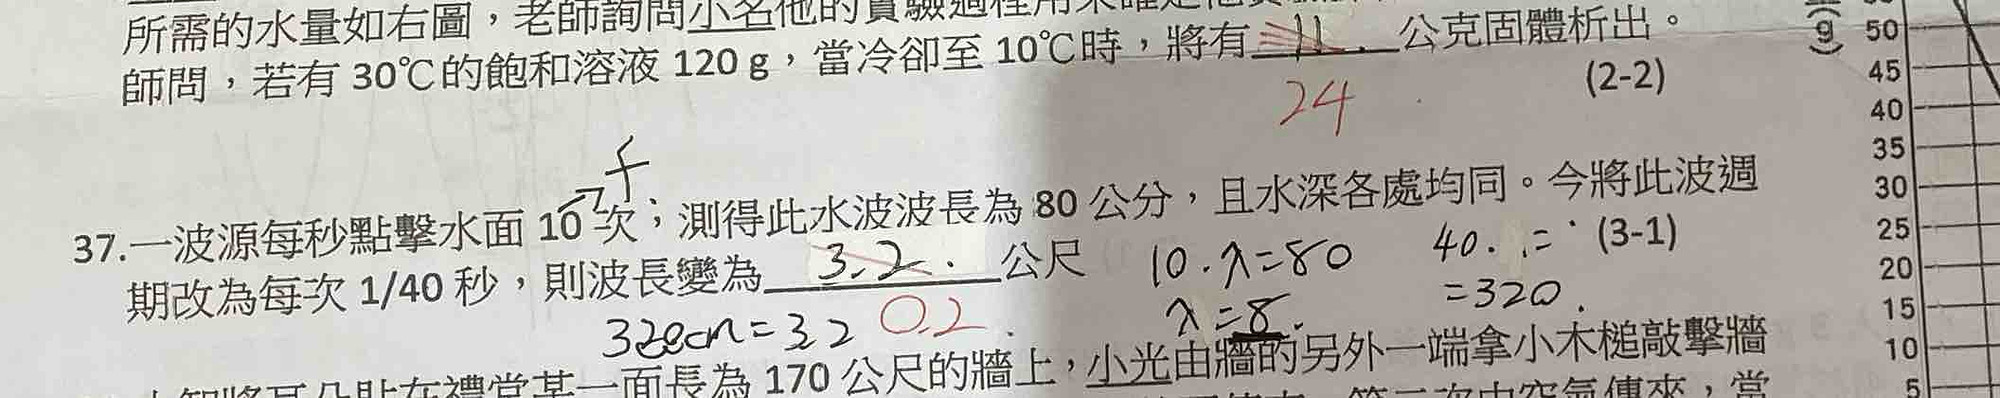 所需的水量如右圖，老師詢問小名他的實驗過程用來
師問，若有 30℃的飽和溶液 120 g，當冷卻至 10℃時，將有 11. 公克固體析出。
(2-2)
24
f
37.一波源每秒點擊水面 10 次；測得此水波波長為 80 公分，且水深各處均同。今將此波週
期改為每次 1/40 秒，則波長變為 3.2. 公尺
(3-1)
10.λ=80
λ=8.
40. =
=320.
320cm=3.2
0.2.
面長為 170 公尺的牆上，小光由牆的另外一端拿小木槌敲擊牆
(g)
50
45
40
35
30
25
20
15
10
5